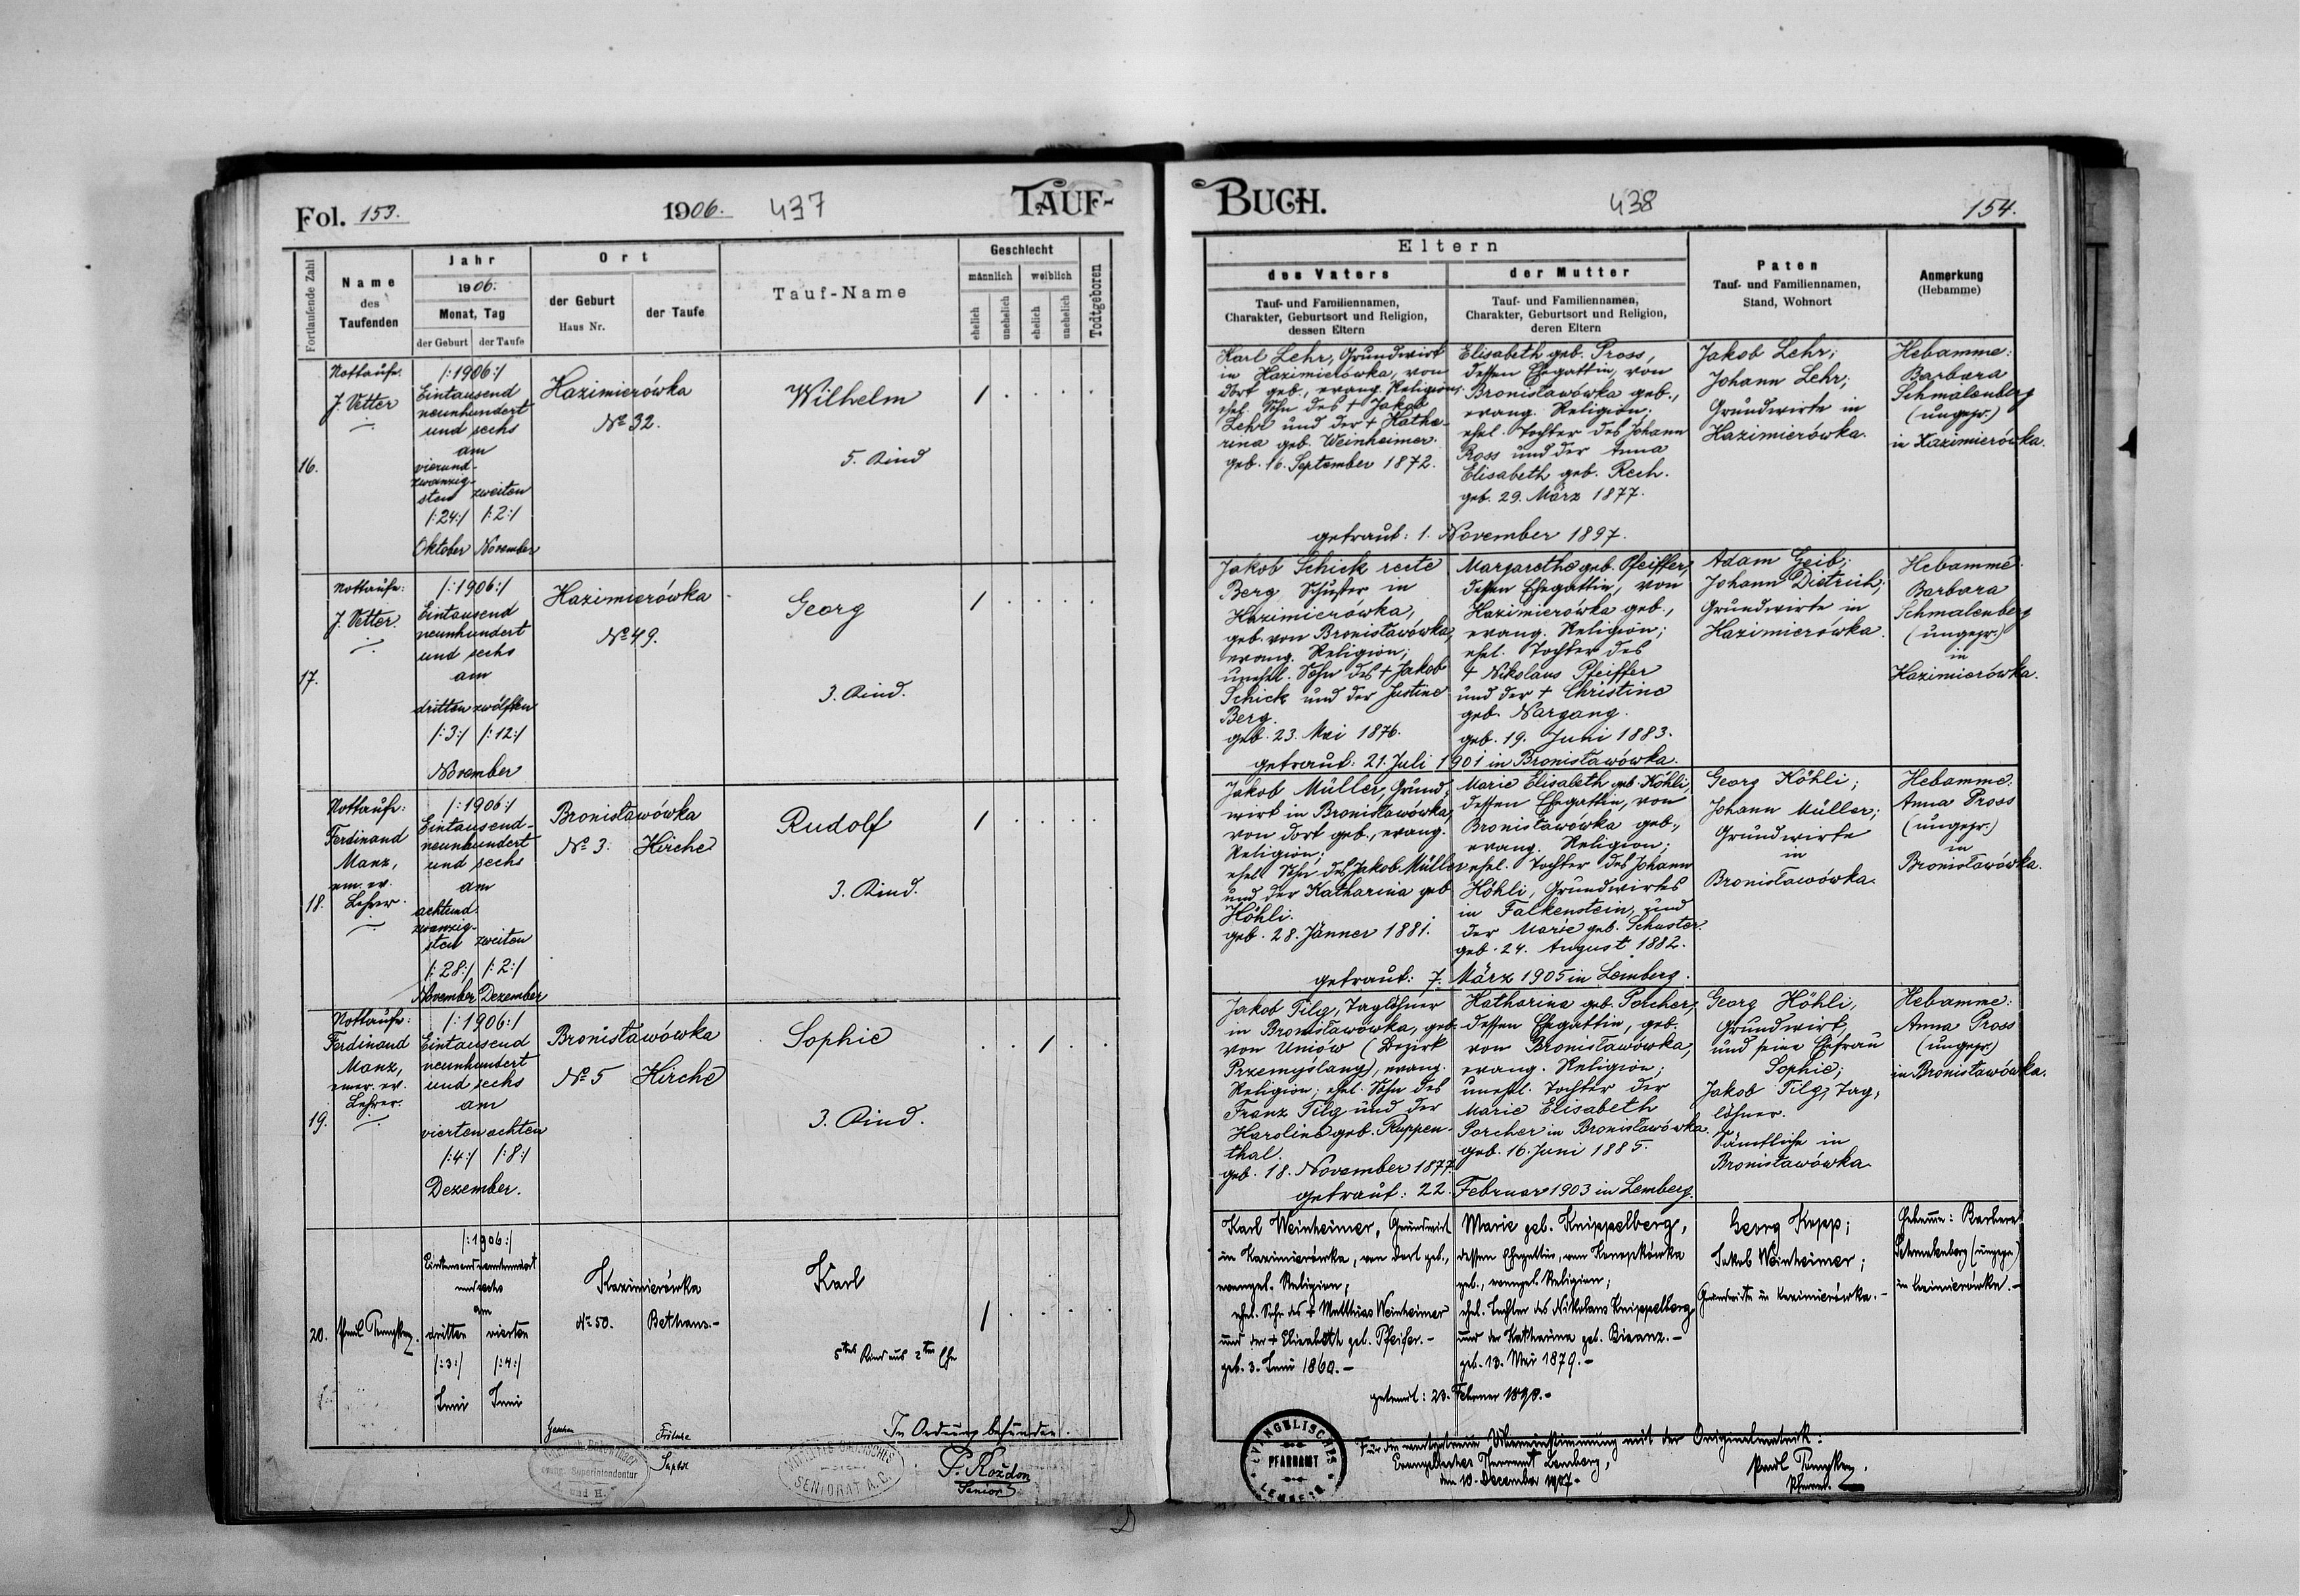 Fol. 153.
1906.
437
TAUF-
Fortlaufende Zahl
Name
des
Taufenden
Jahr
1906.
Monat, Tag
der Geburt
der Taufe
Ort
der Geburt
Haus Nr.
der Taufe
Tauf-Name
Geschlecht
männlich
weiblich
ehelich
unehelich
ehelich
unehelich
Todtgeboren
16.
Nottaufe.
J. Vetter
/:1906:/
Eintausend
neunhundert
und sechs
am
vierund-
zwanzig-
sten
zweiten
/:24:/
/:2:/
Oktober
November
Kazimierówka
No 32.
Wilhelm
5. Kind
1
17.
Nottaufe:
J. Vetter.
/:1906:/
Eintausend
neunhundert
und sechs
am
dritten
zwölften
/:3:/
/:12:/
November
Kazimierówka
No 49.
Georg
3. Kind.
1
18.
Nottaufe:
Ferdinand
Manz,
em. ev.
Lehrer.
/:1906:/
Eintausend-
neunhundert
und sechs
am
achtund-
zwanzig-
sten
zweiten
/:28:/
/:2:/
November
Dezember
Bronisławówka
No 3.
Kirche
Rudolf
3. Kind.
1
19.
Nottaufe:
Ferdinand
Manz,
emer. ev.
Lehrer.
/:1906:/
Eintausend
neunhundert
und sechs
am
vierten
achten
/:4:/
/:8:/
Dezember.
Bronisławówka
No 5
Kirche
Sophie
3. Kind.
1
20.
Paul
/:1906:/
Eintausendneunhundert
und sechs
am
dritten
vierten
/:3:/
/:4:/
Juni
Juni
Kazimierówka
No 50.
Bethaus.-
Karl
5tes Kind aus 2ter Ehe
1
Gesehen
In Ordnung befunden.
evang. Superintendentur
A. und H.
SENIORAT A.C.
Senior
BUCH.
438
154.
Eltern
des Vaters
Tauf- und Familiennamen,
Charakter, Geburtsort und Religion,
dessen Eltern
der Mutter
Tauf- und Familiennamen,
Charakter, Geburtsort und Religion,
deren Eltern
Paten
Tauf- und Familiennamen,
Stand, Wohnort
Anmerkung
(Hebamme)
Karl Lehr, Grundwirt
in Kazimierówka, von
dort geb., evang. Religion;
ehel. Sohn des † Jakob
Lehr und der † Katha-
rina geb. Weinheimer.
geb. 16. September 1872.
Elisabeth geb. Pross,
dessen Ehegattin, von
Bronisławówka geb.,
evang. Religion;
ehel. Tochter des Johann
Pross und der Anna
Elisabeth geb. Rech.
geb. 29. März 1877.
getraut: 1. November 1897.
Jakob Lehr;
Johann Lehr;
Grundwirte in
Kazimierówka.
Hebamme:
Barbara
Schmalenberg
(ungepr.)
in Kazimierówka.
Jakob Schick recte
Berg, Schuster in
Kazimierówka,
geb. von Bronisławówka,
evang. Religion;
unehel. Sohn des † Jakob
Schick und der Justine
Berg.
geb. 23. Mai 1876.
Margarethe geb. Pfeiffer,
dessen Ehegattin, von
Kazimierówka geb.,
evang. Religion;
ehel. Tochter des
† Nikolaus Pfeiffer
und der † Christine
geb. Nargang.
geb. 19. Juni 1883.
getraut: 21. Juli 1901 in Bronisławówka.
Adam Geib;
Johann Dietrich;
Grundwirte in
Kazimierówka.
Hebamme:
Barbara
Schmalenberg
(ungepr.)
in
Kazimierówka.
Jakob Müller, Grund-
wirt in Bronisławówka,
von dort geb., evang.
Religion;
ehel. Sohn des Jakob Müller
und der Katharina geb.
Höhli.
geb. 28. Jänner 1881.
Marie Elisabeth geb. Köhli,
dessen Ehegattin, von
Bronisławówka geb.,
evang. Religion;
ehel. Tochter des Johann
Höhli, Grundwirtes
in Falkenstein, und
der Marie geb. Schuster.
geb. 24. August 1882.
getraut: 7. März 1905 in Lemberg.
Georg Köhli;
Johann Müller;
Grundwirte
in
Bronisławówka.
Hebamme:
Anna Pross
(ungepr.)
in
Bronisławówka.
Jakob Tilg, Taglöhner
in Bronisławówka, geb.
von Uniów (Bezirk
Przemyślany), evang.
Religion; ehel. Sohn des
Franz Tilg und der
Karoline geb. Ruppen-
thal.
geb. 18. November 1877.
Katharina geb. Porcher,
dessen Ehegattin, geb.
von Bronisławówka,
evang. Religion;
unehel. Tochter der
Marie Elisabeth
Porcher in Bronisławówka.
geb. 16. Juni 1885.
getraut: 22. Februar 1903 in Lemberg.
Georg Höhli,
Grundwirt,
und seine Ehefrau
Sophie;
Jakob Tilg, Tag-
löhner.
Sämtliche in
Bronisławówka
Hebamme:
Anna Pross
(ungepr.)
in Bronisławówka.
Karl Weinheimer, Grundwirt
in Kazimierówka, von dort geb.,
evangel. Religion;
ehel. Sohn des † Matthias Weinheimer
und der † Elisabeth geb. Pfeifer.-
geb. 3. Juni 1860.-
Marie geb. Knippelberg,
dessen Ehegattin, von Konopkówka
geb., evangel. Religion;
ehel. Tochter des Nikolaus Knippelberg
und der Katharina geb. Bisanz.-
geb. 13. Mai 1879.-
getraut: 23. Februar
Georg Kopp;
Jakob Weinheimer;
Grundwirte in Kazimierówka.-
Hebamme: Barbara
Schmalenberg (ungepr.)
in Kazimierówka.-
EVANGELISCHES
PFARRAMT
LEMBERG
Für die wortgetreue Übereinstimmung mit der Originalmatrik:
Evangelisches Pfarramt Lemberg,
den 10. December 1907.-
Paul
Pfarrer.